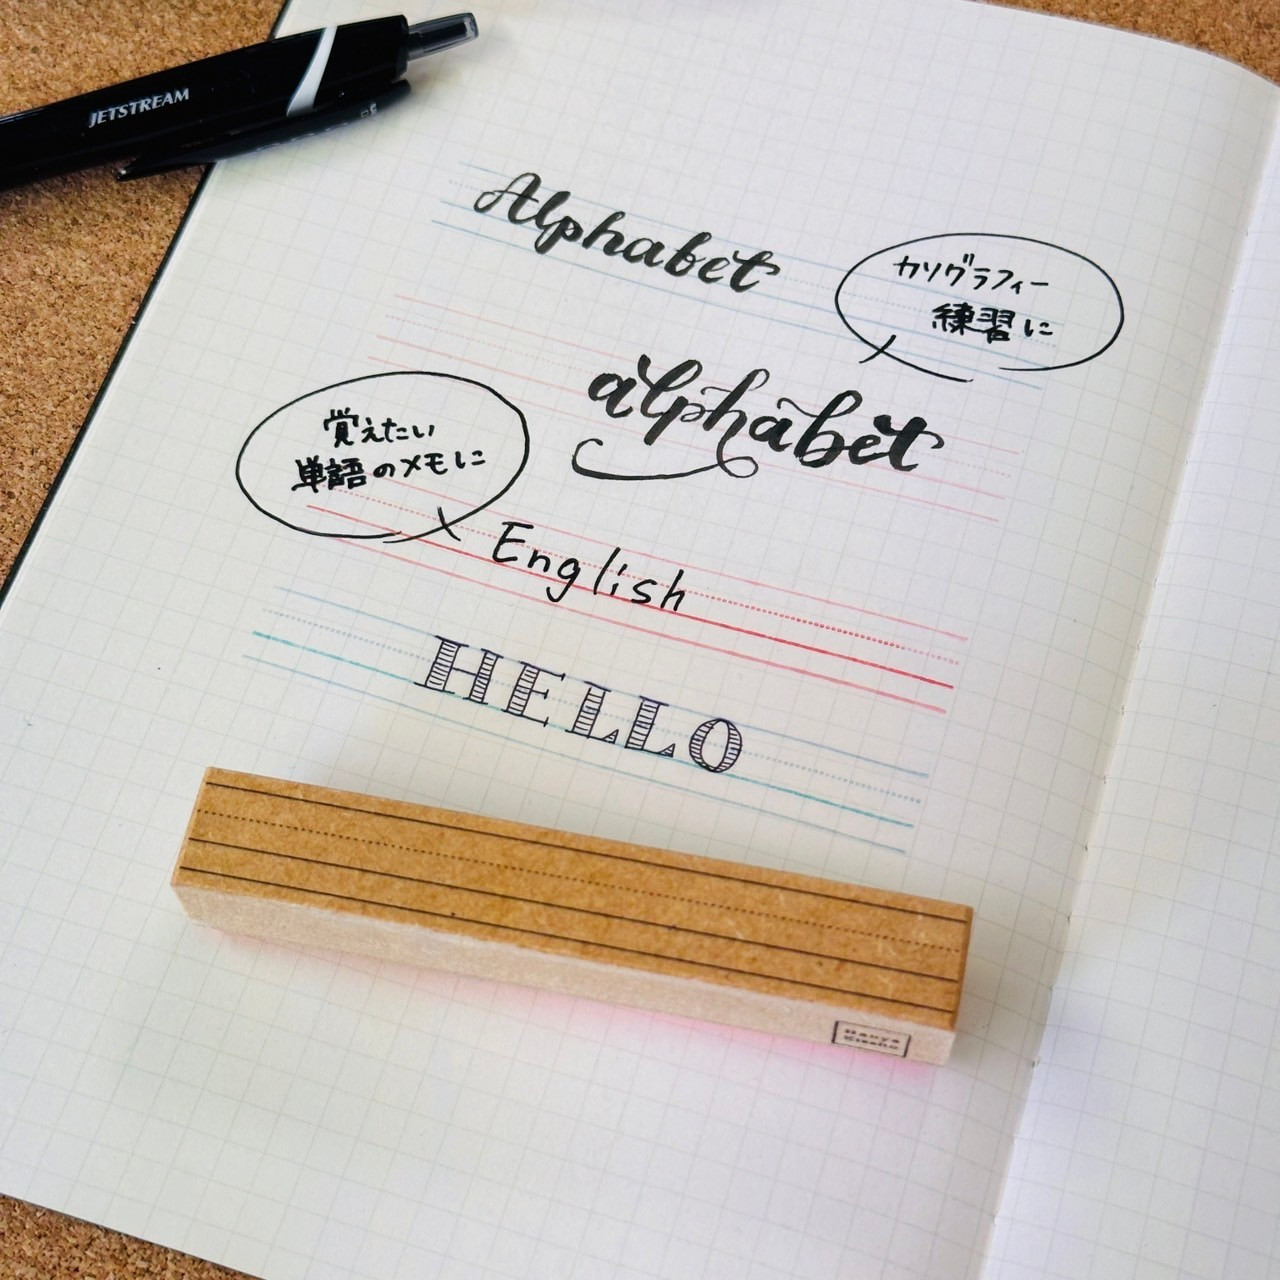 JETSTREAM
Alphabet
カリグラフィー
練習に
alphabet
覚えたい
単語のメモに
English
HELLO
Hanya